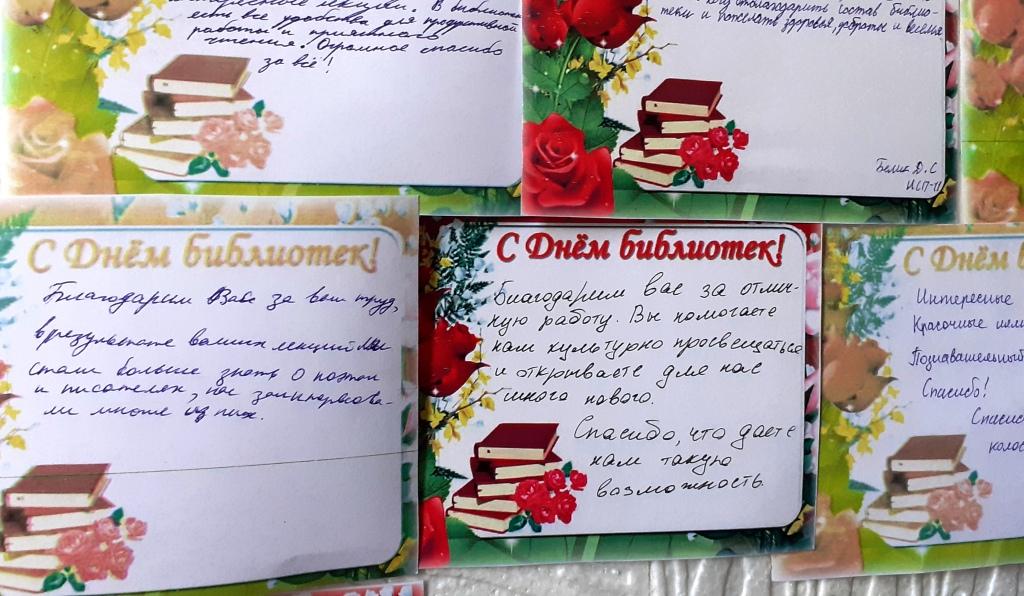 интересные лекции. В библиотеке
есть все удобства для продуктивной
работы и приятного
чтения. Огромное спасибо
за всё!
отблагодарить состав библио-
теки и пожелать здоровья, доброты и веселья
Белик Д.С
ИСП-11
С Днём библиотек!
Благодарим Вас за ваш труд,
в результате ваших лекций мы
стали больше знать о поэтах
и писателях, нас заинтересова-
ли многие из них.
С Днём библиотек!
Благодарим вас за отлич-
ную работу. Вы помогаете
нам культурно просвещаться
и открываете для нас
много нового.
Спасибо, что даете
нам такую
возможность.
С Днём б
Интересные
Красочные илл
Познавательный
Спасибо!
Спасиб
колос